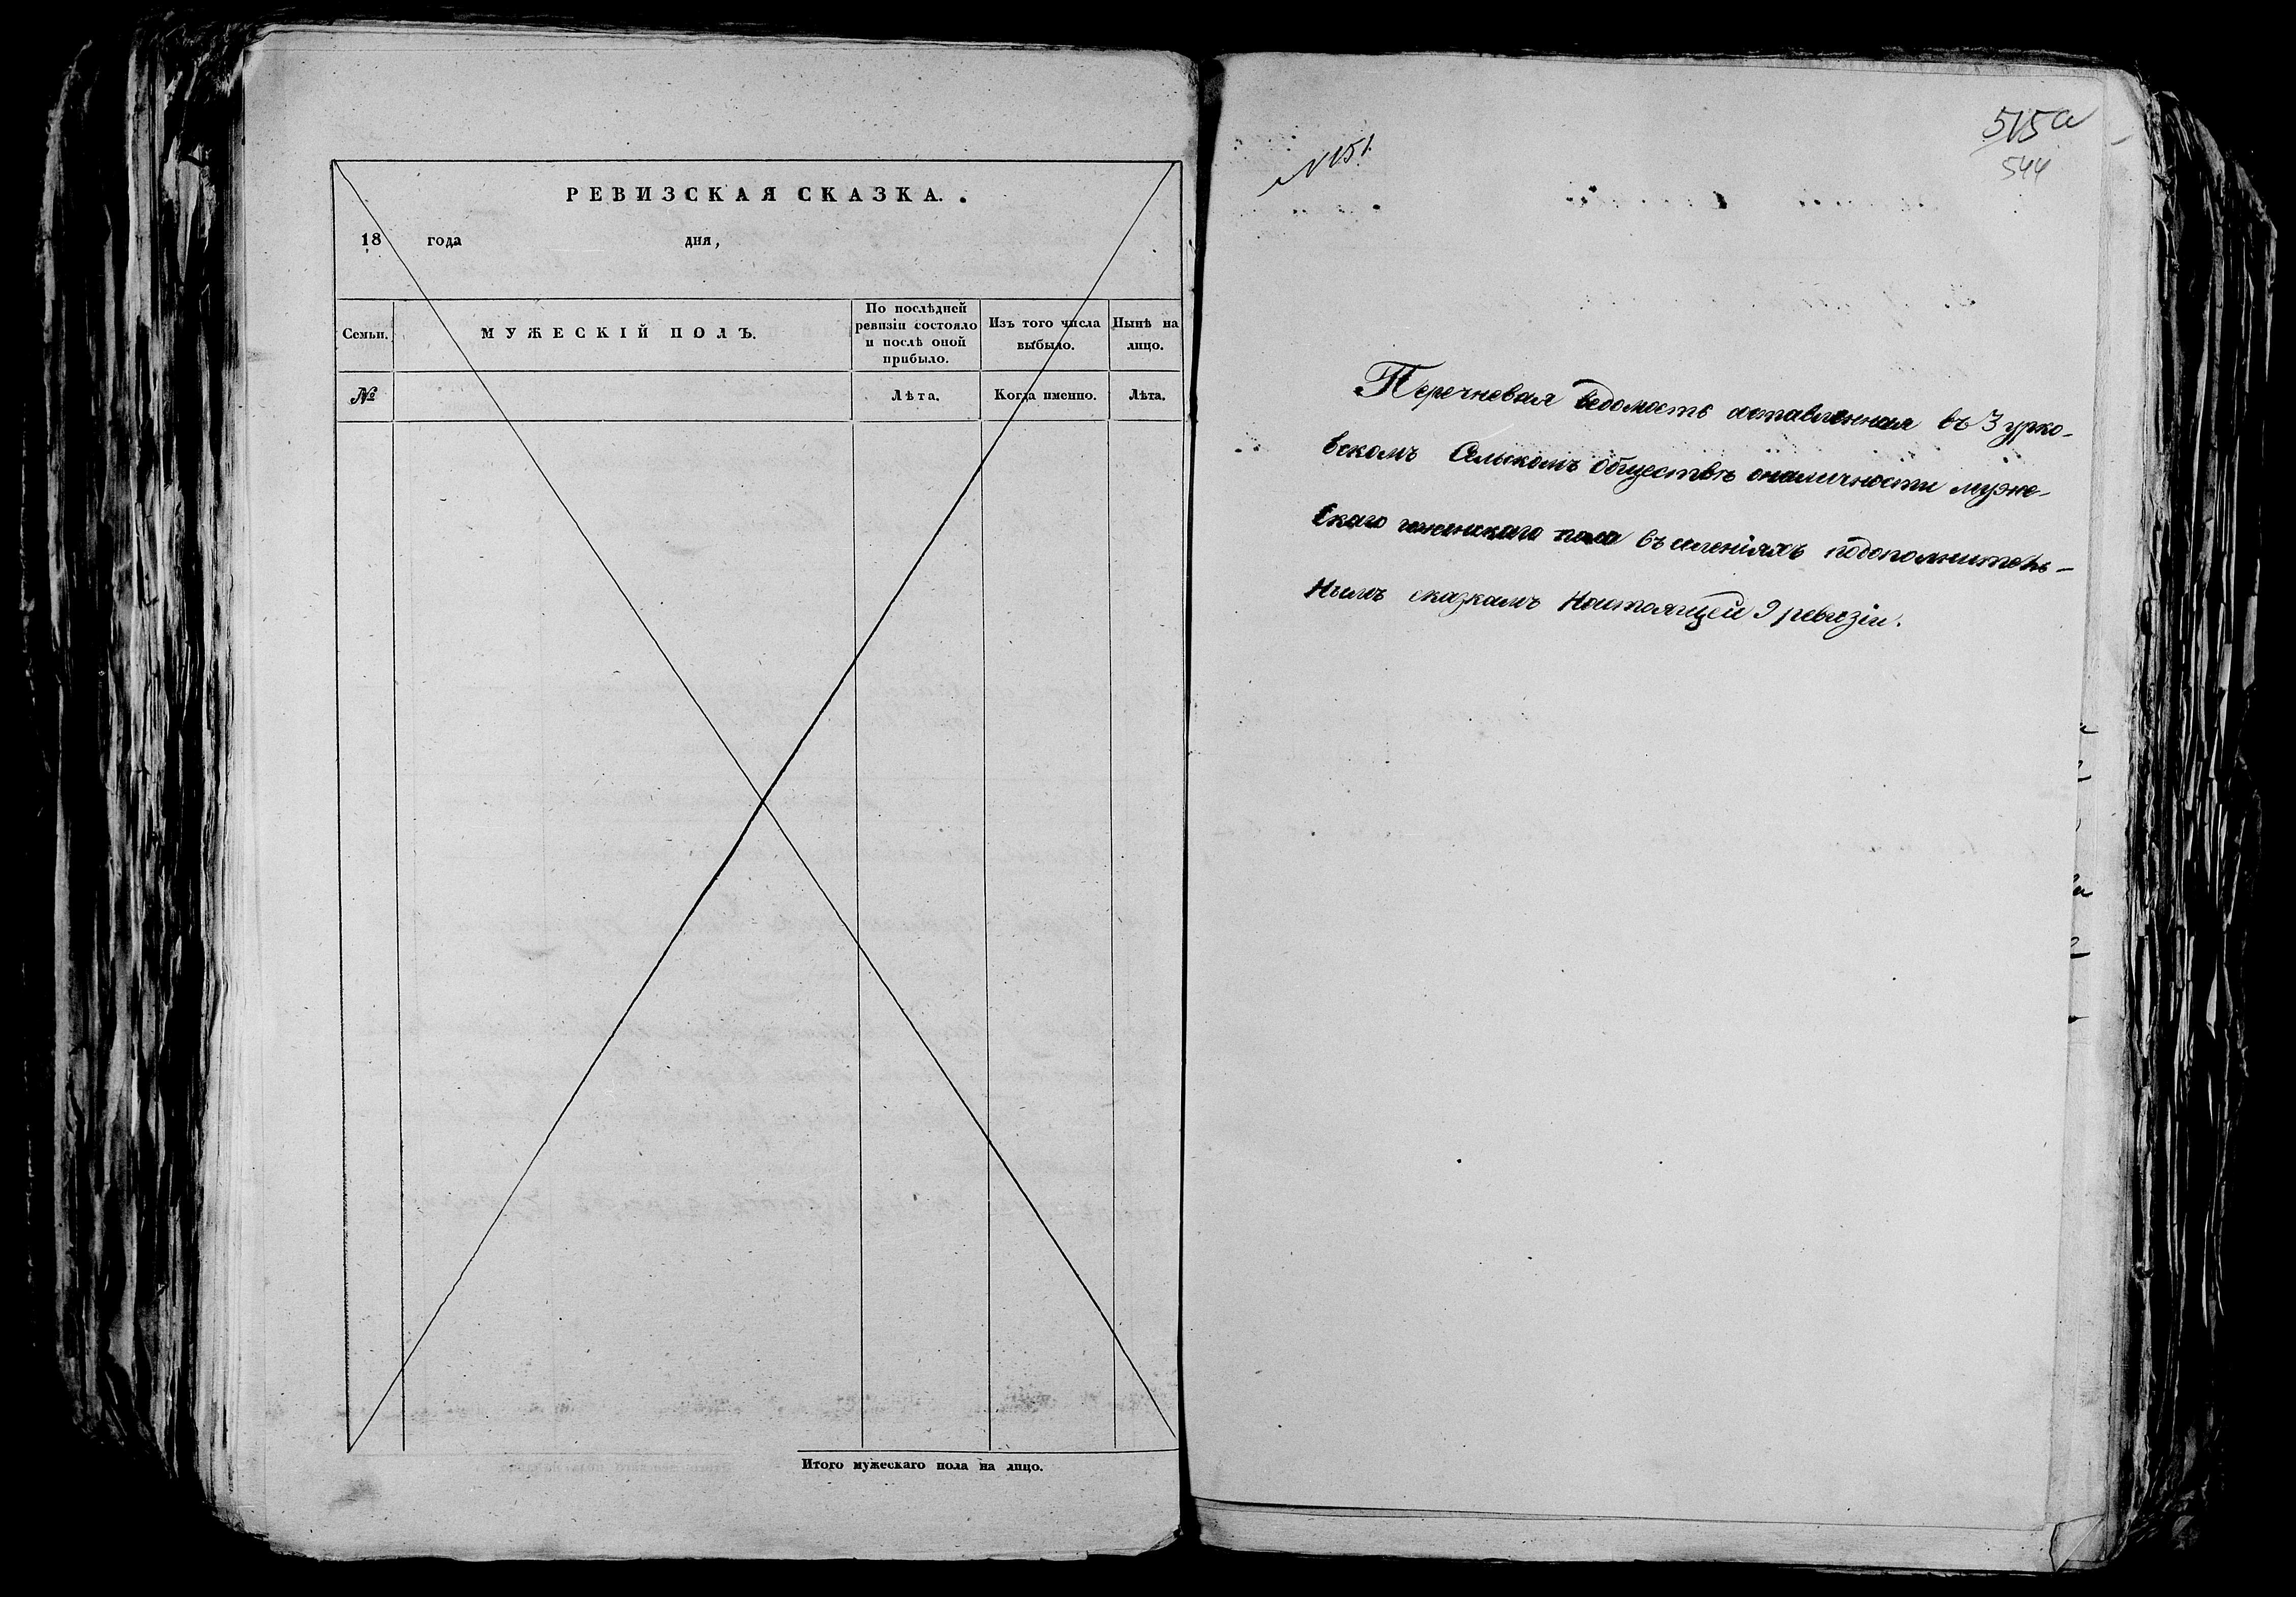 РЕВИЗСКАЯ СКАЗКА.
18 года дня,
Семьи.
МУЖЕСКІЙ ПОЛЪ.
По послѣдней
ревизіи состояло
и послѣ оной
прибыло.
Изъ того числа
выбыло.
Нынѣ на
лицо.
№
Лѣта.
Когда именно.
Лѣта.
Итого мужескаго пола на лицо.
515а
544
№151.
Перечневая ведомость составленная въ Зурко-
вскомъ Сельскомъ обществѣ оналичности муже-
скаго иженскаго пола въ селеніяхъ подополнитель-
нымъ сказкамъ Настоящей 9 ревизіи.